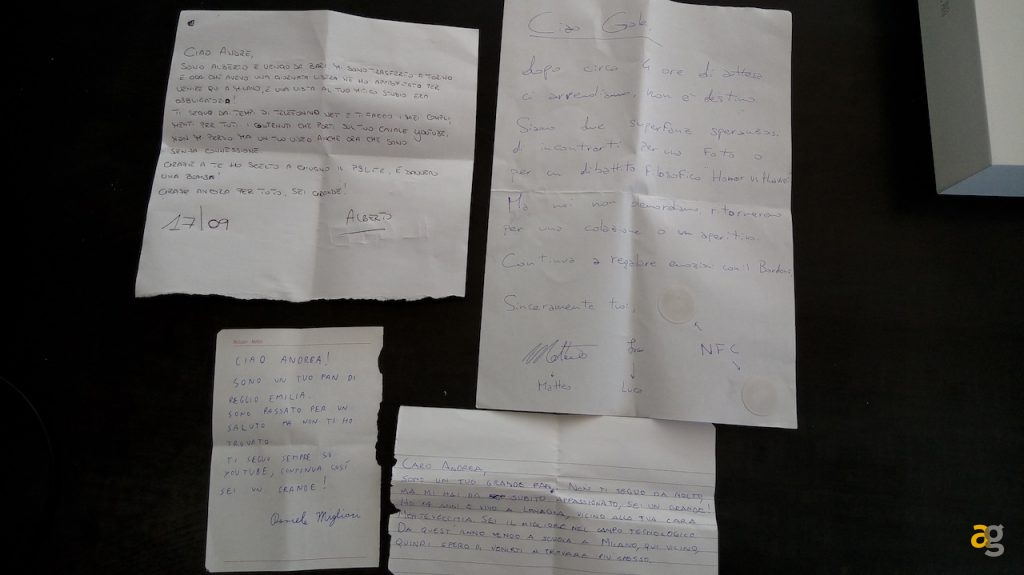 CIAO ANDRE,
SONO ALBERTO E VENGO DA BARI. MI SONO TRASFERITO A TORINO
E ORA CHE AVEVO UNA GIORNATA LIBERA NE HO APPROFITTATO PER
VENIRE QUI A MILANO, E UNA VISITA AL TUO MITICO STUDIO ERA
OBBLIGATORIA!
TI SEGUO DAI TEMPI DI TELEFONINO.NET E TI FACCIO I MIEI COMPLI-
MENTI PER TUTTI I CONTENUTI CHE PORTI SUL TUO CANALE YOUTUBE,
NON MI PERDO MAI UN TUO VIDEO ANCHE ORA CHE SONO
SENZA CONNESSIONE.
GRAZIE A TE HO SCELTO A GIUGNO IL P8LITE, È DAVVERO
UNA BOMBA!
GRAZIE ANCORA PER TUTTO, SEI GRANDE!
17/09
ALBERTO
Ciao Gal
dopo circa 4 ore di attesa
ci arrendiamo, non è destino.
Siamo due superfans speranzosi
di incontrarti per una foto o
per un dibattito filosofico Honor vs Huawei.
Ma noi non demordiamo, ritorneremo
per una colazione o un aperitivo.
Continua a regalare emozioni con il
Sinceramente tuoi,
NFC
Matteo
Luca
CIAO ANDREA!
SONO UN TUO FAN DI
REGGIO EMILIA.
SONO PASSATO PER UN
SALUTO MA NON TI HO
TROVATO
TI SEGUO SEMPRE SU
YOUTUBE, CONTINUA COSÍ
SEI UN GRANDE!
Daniele Migliari
CARO ANDREA,
SONO UN TUO GRANDE FAN. NON TI SEGUO DA MOLTO,
MA MI HAI DA SUBITO APPASSIONATO, SEI UN GRANDE!
HO 14 ANNI E VIVO A LOMAGNA, VICINO ALLA TUA CARA
MONTEVECCHIA. SEI IL MIGLIORE NEL CAMPO TECNOLOGICO.
DA QUEST'ANNO VENGO A SCUOLA A MILANO, QUI VICINO,
QUINDI SPERO DI VENIRTI A TROVARE PIÙ SPESSO.
ag